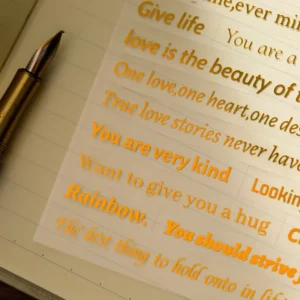 me,ever mi
Give life You are a
love is the beauty of t
One love,one heart,one des
True love stories never have
You are very kind Lookin
Want to give you a hug C
Rainbow. You should strive,
The best thing to hold onto in life